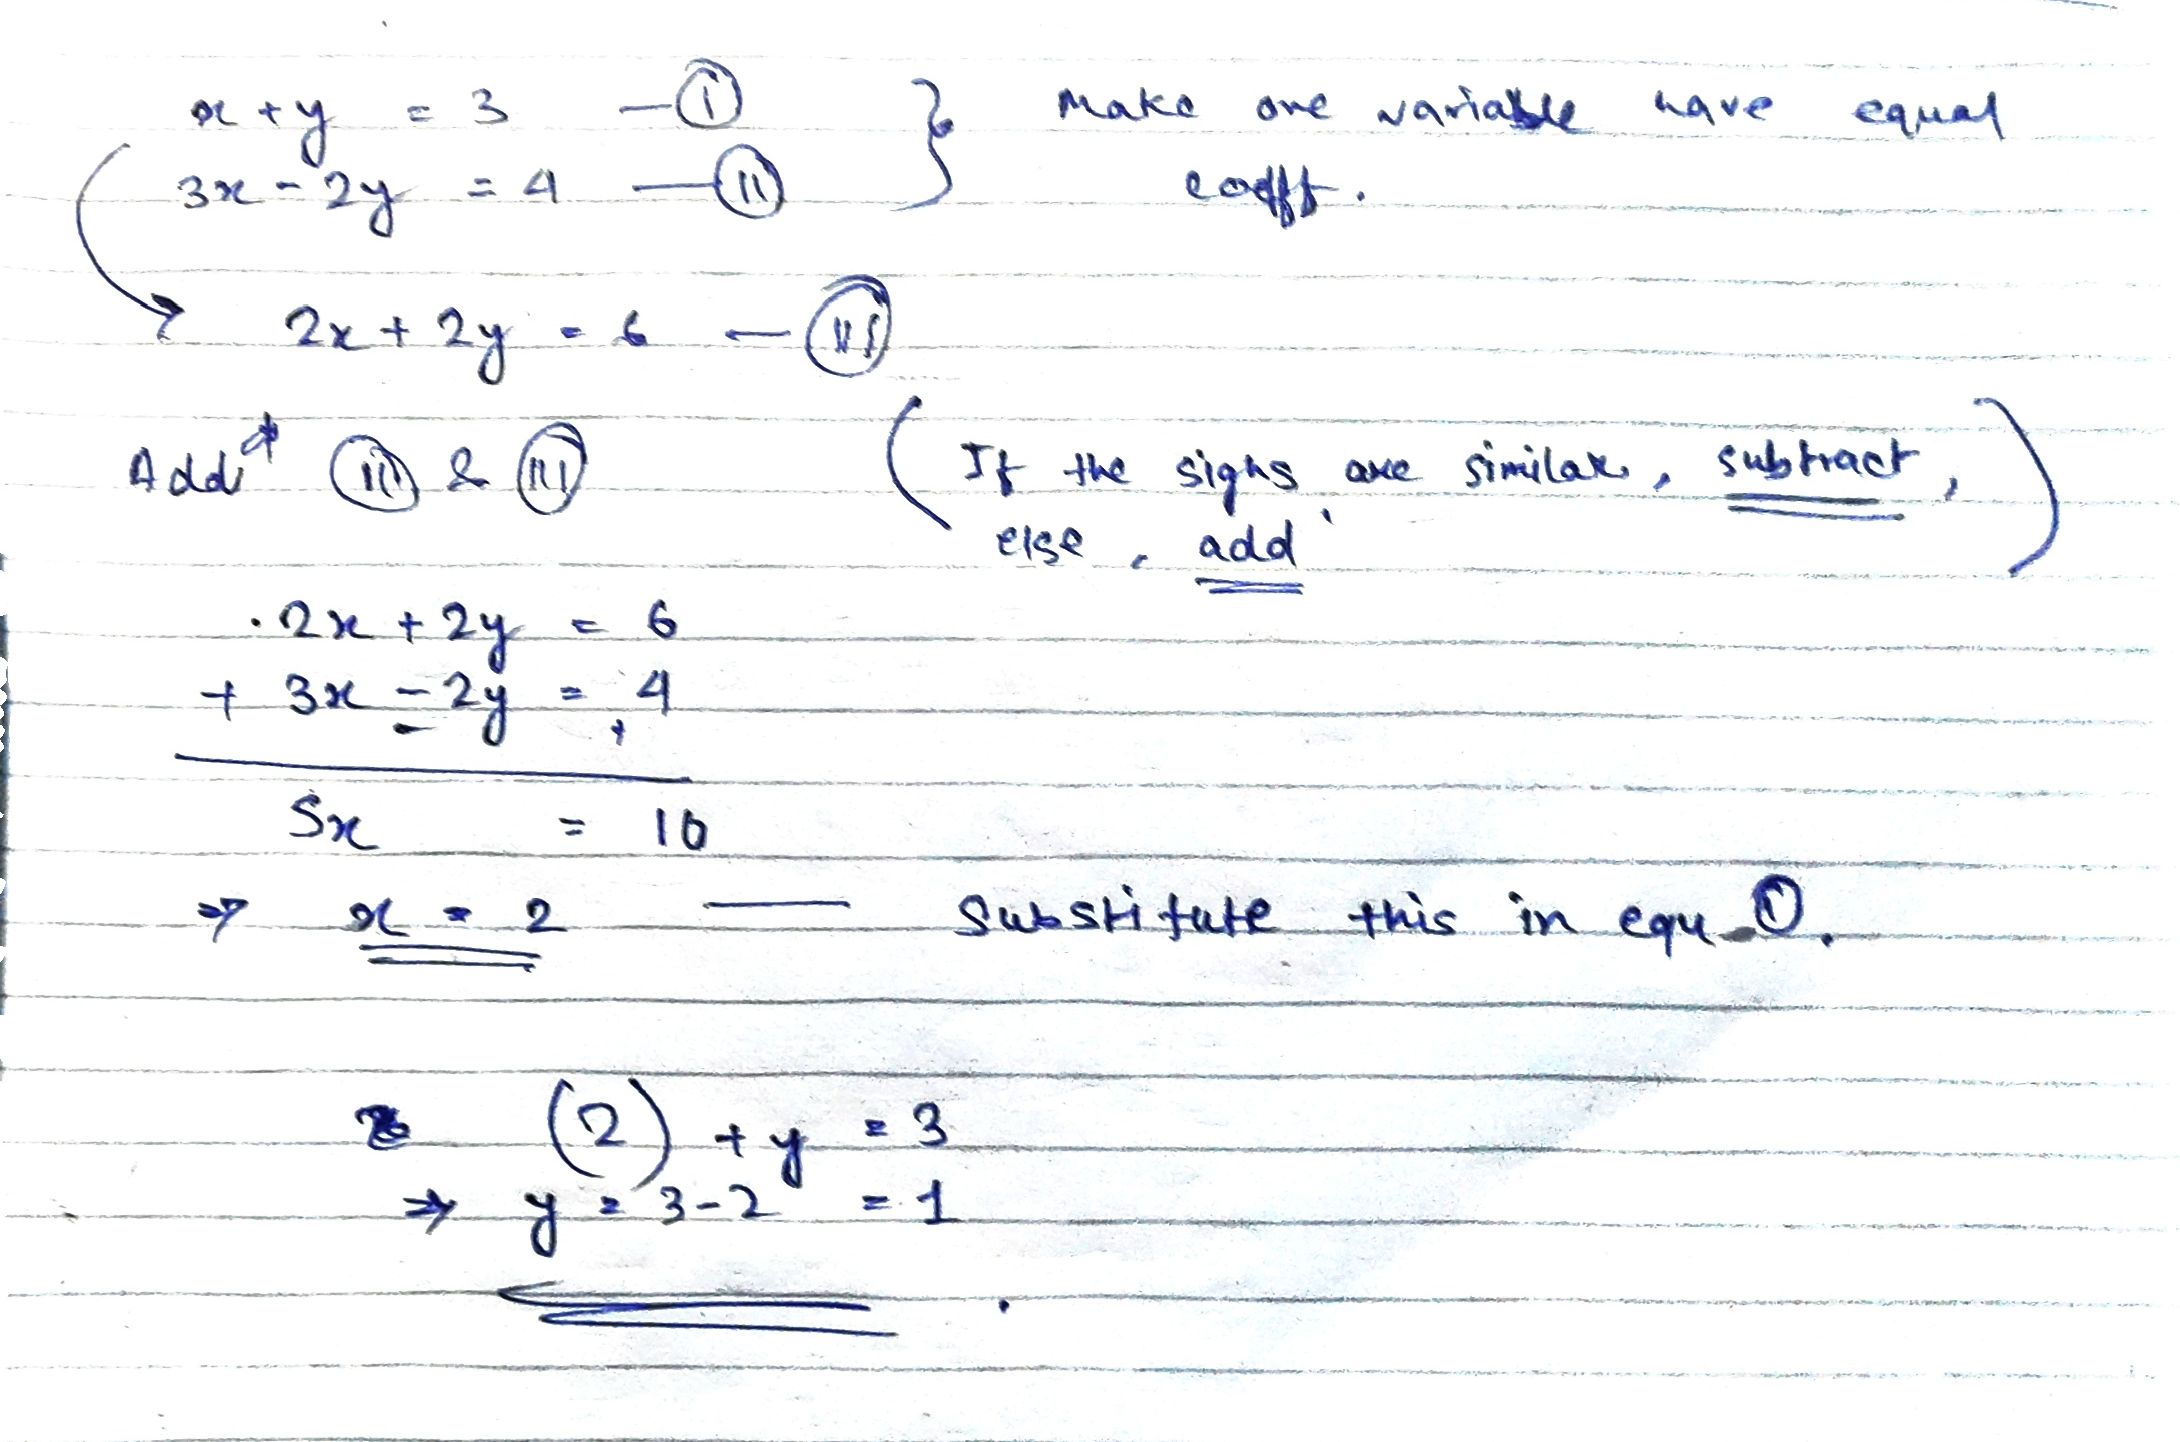 x + y = 3 — (I) } Make one variable have equal
3x - 2y = 4 — (II) coeff.
2x + 2y = 6 — (III)
Add (II) & (III) (If the signs are similar, subtract,
else, add)
2x + 2y = 6
+ 3x - 2y = 4
5x = 10
⇒ x = 2 — Substitute this in equ (I).
(2) + y = 3
⇒ y = 3-2 = 1